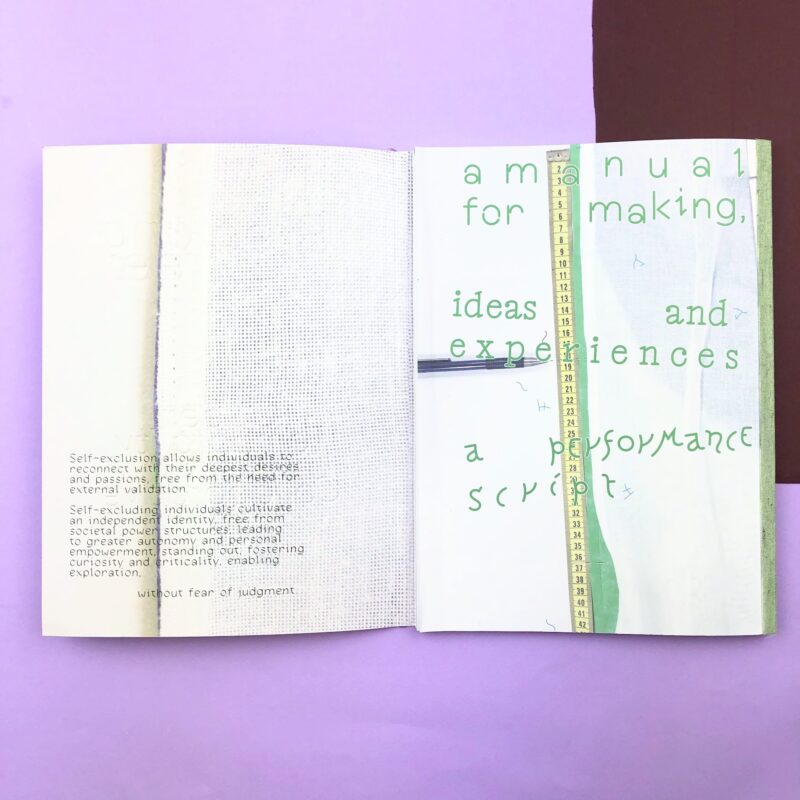 Self-exclusion allows individuals to
reconnect with their deepest desires
and passions, free from the need for
external validation.
Self-excluding individuals cultivate
an independent identity, free from
societal power structures, leading
to greater autonomy and personal
empowerment, standing out, fostering
curiosity and criticality, enabling
exploration,
without fear of judgment.
a manual
for making,
ideas and
experiences
a performance
script
2
3
4
5
6
7
8
9
10
11
12
13
14
15
16
17
18
19
20
21
22
23
24
25
28
29
30
32
33
34
35
36
37
38
39
40
41
42